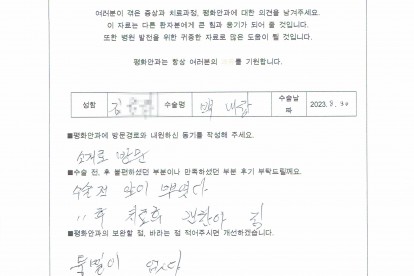 여러분이 겪은 증상과 치료과정, 평화안과에 대한 의견을 남겨주세요.
이 자료는 다른 환자분에게 큰 힘과 용기가 되어 줄 것입니다.
또한 병원 발전을 위한 귀중한 자료로 많은 도움이 될 것입니다.
평화안과는 항상 여러분의 를 기원합니다.
성함 김 수술명 백내장 수술날짜 2023. 8. 30
■평화안과에 방문경로와 내원하신 동기를 작성해 주세요.
소개로 방문
■수술 전, 후 불편하셨던 부분이나 만족하셨던 부분 후기 부탁드릴께요.
수술전 앞이 뿌옇다
〃 후 치료후 괜찮아 짐
■평화안과의 보완할 점, 바라는 점 적어주시면 개선하겠습니다.
특별이 없다